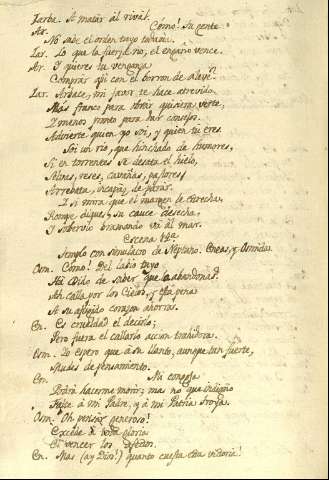 Iarba. A matar al rival.
Ar. Cómo! Su gente
No sabe el orden tuyo todavia.
Iar. Lo que la fuerza no, el engaño vence.
Ar. I quieres tu venganza
Comprar asi con el borron de aleve?
Iar. Arbace, mi favor te hace atrevido.
Más franco para obrar quisiera verte,
I menos pronto para dar consejos.
Advierte quien yo soi, y quien tu eres.
Soi un rio, que hinchado de humores,
Si en torrentes se desata el hielo,
Selvas, reses, cavañas, pastores
Arrebata, incapaz de parar.
I si mira que el margen le estrecha,
Rompe diques, su cauce desecha,
I sobervio bramando vá al mar.
Escena
Templo con simulacro de Neptuno. Eneas, y Osmida.
Osm. Cómo! Del labio tuyo
Há Dido de saber que la abandonas?
Ah calla por los Cielos, y esta pena
A su afligido corazon ahorra.
En. Es crueldad el decirlo;
Pero fuera el callarlo accion traidora.
Osm. Io espero que á su llanto, aunque tan fuerte,
Mudes de pensamiento.
En. Mi congoja
Podrá hacerme morir; mas no que indigno
Falte á mi Padre, y á mi Patria Troya.
Osm. Oh pensar generoso!
Excede á toda gloria
El vencer los afectos.
En. Mas (ay Dios!) quanto cuesta esta victoria!